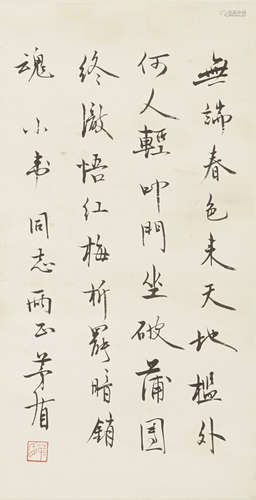 無端春色来天地檻外
何人輕叩門坐破蒲團
終澈悟红梅析罷暗銷
魂 小韦同志两正 茅盾